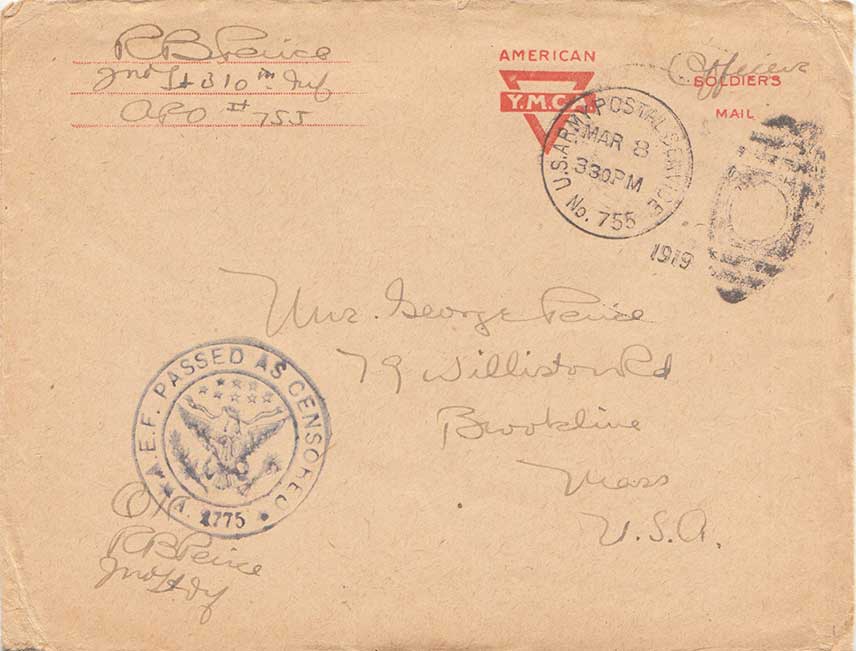 R B Peirce
2nd Lt 310th Inf
APO # 755
AMERICAN
Y.M.C.A.
Officers
SOLDIERS
MAIL
U.S. ARMY POSTAL SERVICE
MAR 8
330PM
No. 755
1919
Mrs. George Peirce
79 Williston Rd
Brookline
Mass
U.S.A.
A.E.F. PASSED AS CENSORED
A. 2775
OK
R B Peirce
2nd Lt Inf